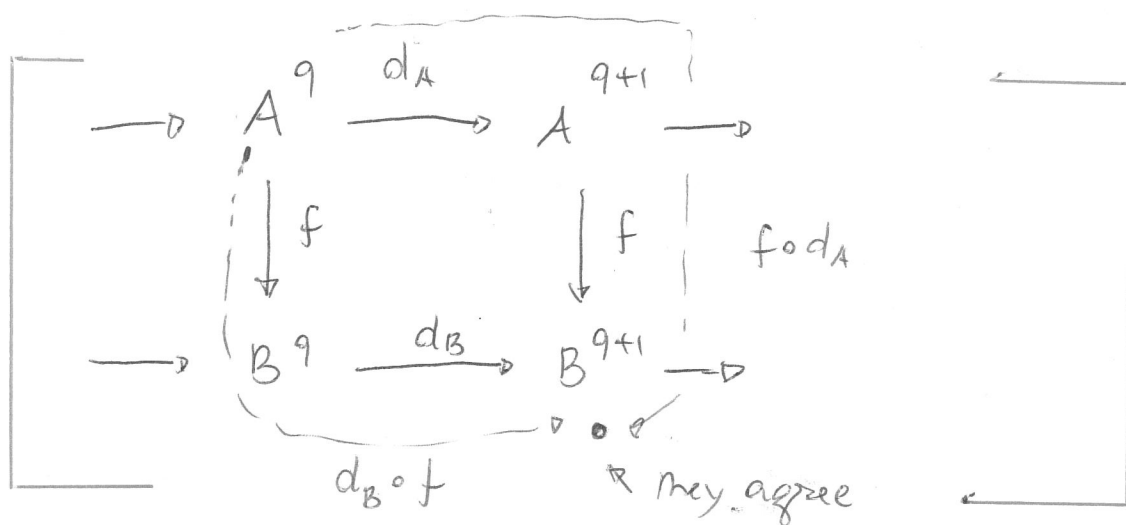 A^q d_A A^{q+1}
f f f∘d_A
B^q d_B B^{q+1}
d_B∘f they agree